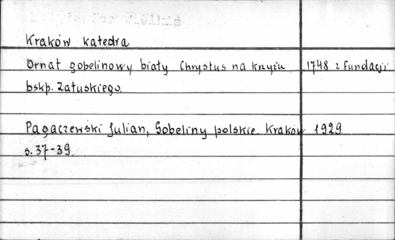 Kraków katedra
Ornat gobelinowy biały Chrystus na krzyżu 1748 z fundacji
bskp. Załuskiego.
Pagaczewski Julian, Gobeliny polskie. Kraków 1929
s. 37-39.